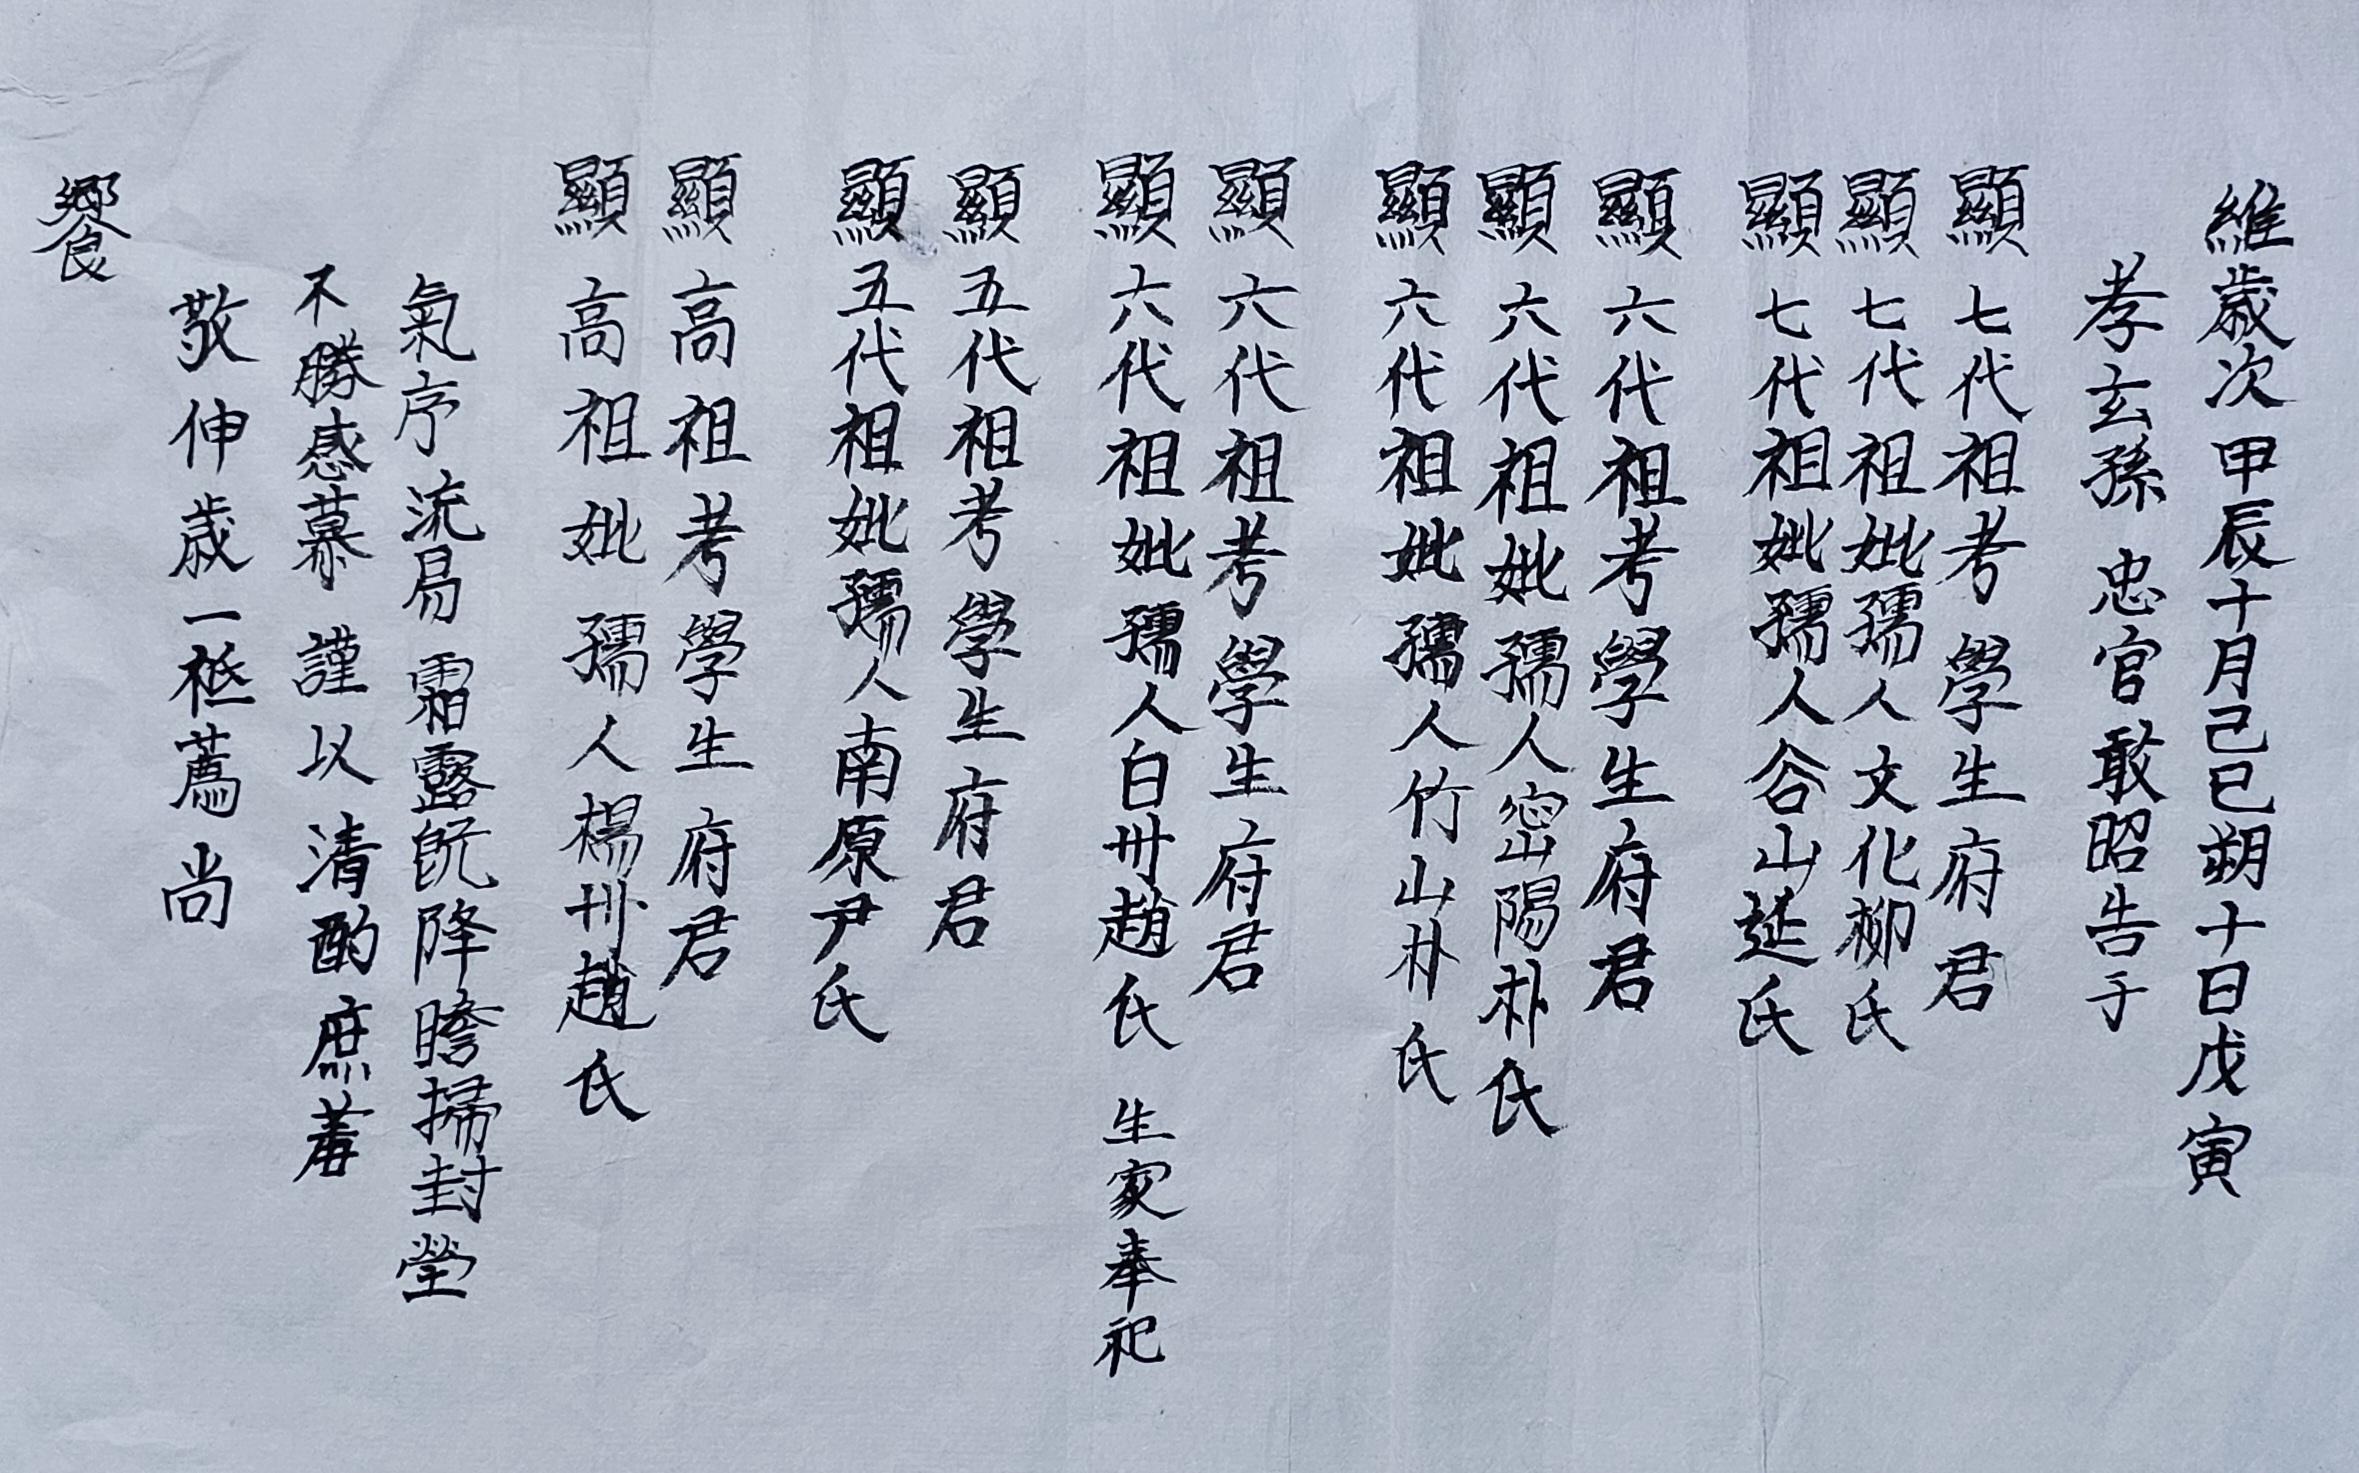 維歲次甲辰十月己巳朔十日戊寅
孝玄孫 忠官敢昭告于
顯七代祖考學生府君
顯七代祖妣孺人文化柳氏
顯七代祖妣孺人谷山延氏
顯六代祖考學生府君
顯六代祖妣孺人密陽朴氏
顯六代祖妣孺人竹山朴氏
顯六代祖考學生府君
顯六代祖妣孺人白州趙氏 生家奉祀
顯五代祖考學生府君
顯五代祖妣孺人南原尹氏
顯高祖考學生府君
顯高祖妣孺人楊州趙氏
氣序流易 霜露旣降瞻掃封塋
不勝感慕 謹以清酌庶羞
敬伸歲一祗薦尚
饗